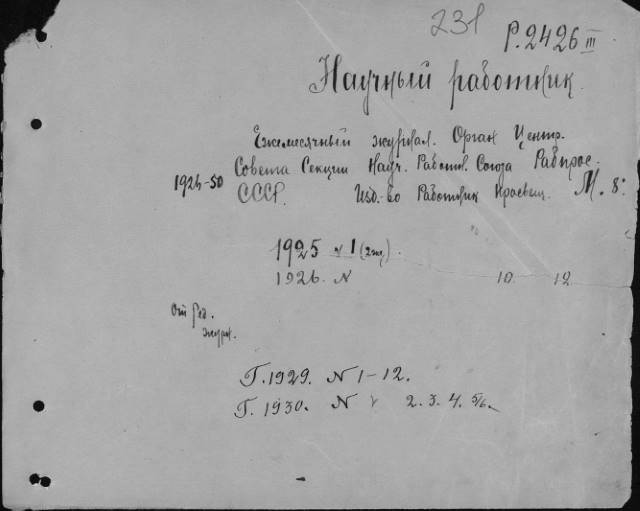 231
Р.2426 III
Научный работник.
Ежемесячный журнал. Орган Центр.
Совета Секции Науч. Работн. Союза Рабпрос.
СССР. Изд-во Работник Просвещ. М. 8°
1925 № 1 (2 экз).
1926. N 10 12
От Ред.
журн.
Г. 1929. N 1-12.
Г. 1930. N 2. 3. 4. 5/6.